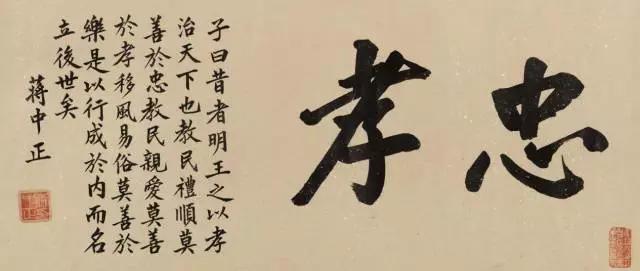 忠孝
子曰昔者明王之以孝
治天下也教民禮順莫
善於忠教民親愛莫善
於孝移風易俗莫善於
樂是以行成於內而名
立後世矣
蔣中正